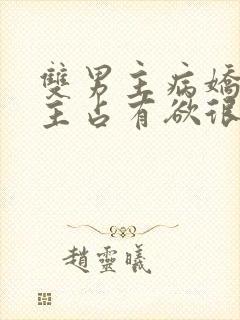 雙男主病嬌
主占有欲很
趙靈曦